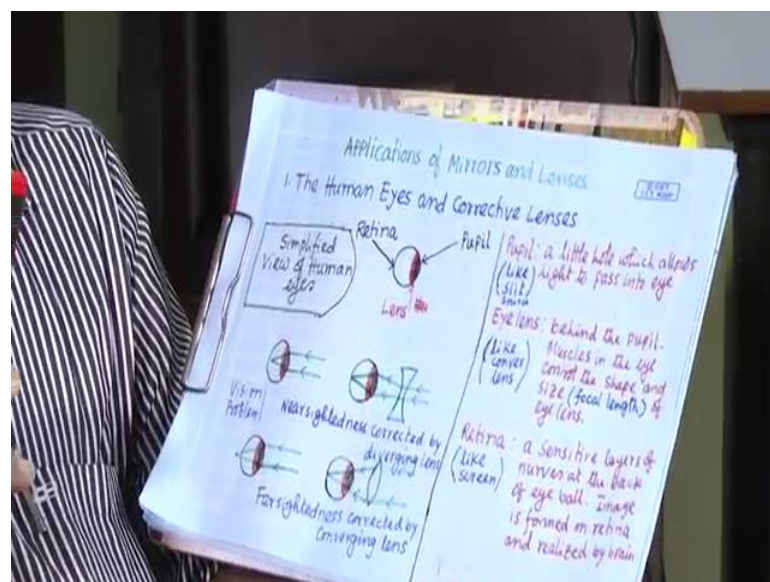 Applications of Mirrors and Lenses
1. The Human Eyes and Corrective Lenses
Simplified
View of Human
eyes
Retina
Pupil
Lens
Vision
Problem
Nearsightedness corrected by
diverging lens
Farsightedness corrected by
Converging lens
Pupil: a little hole which allows
(like light to pass into eye
slit
Eye lens: behind the pupil.
(like Muscles in the eye
convex control the shape and
lens) size (focal length) of
eye lens.
Retina: a sensitive layers of
(like nurves at the back
screen) of eye ball. Image
is formed on retina
and realized by brain